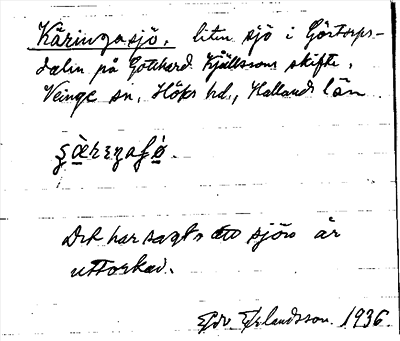 Käringasjö, liten sjö i Görtorps-
dalen på Gotthard Kjällssons skifte,
Veinge sn, Höks hd., Hallands län.
Det har sagts att sjön är
uttorkad.
Erlandsson. 1936.